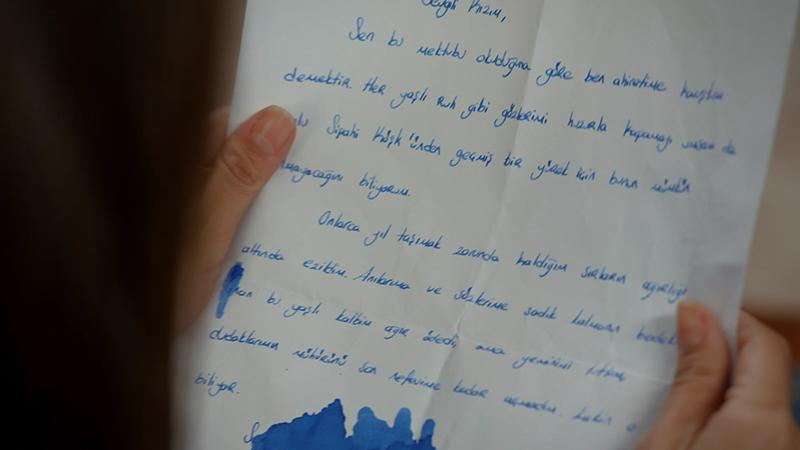 Sevgili Kızım,
Sen bu mektubu okuduğuna göre ben ahiretime
demektir. Her yaşlı ruh gibi gözlerimi huzurla kapamayı da
Sipahi Köşk'ünden geçmiş bir yürek için bunun mümkün
biliyorum.
Onlarca yıl taşımak zorunda kaldığım sırların ağırlığı
altında ezildim. Anılarıma ve sözlerime sadık kalmanın
bu yaşlı kalbim ağır ödedi, ama yeminimi tuttum,
dudaklarımın mührünü son nefesime kadar açmadım. Lakin o
biliyor.